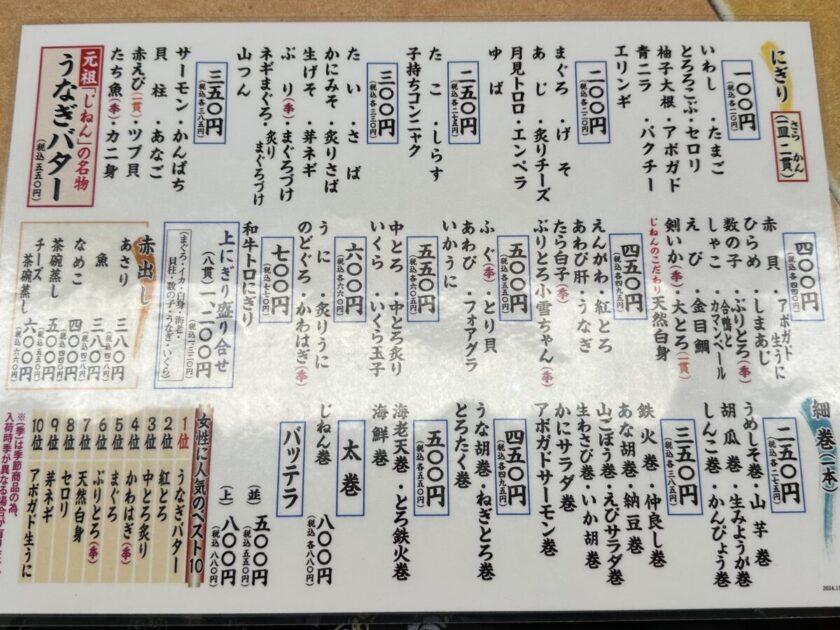 にぎり
(一皿二貫)
さら かん
一〇〇円
(税込各一一〇円)
いわし・たまご
とろろこぶ・セロリ
柚子大根・アボガド
青ニラ・パクチー
エリンギ
二〇〇円
(税込各二二〇円)
まぐろ・げそ
あじ・炙りチーズ
月見トロロ・エンペラ
ゆば
二五〇円
(税込各二七五円)
たこ・しらす
子持ちコンニャク
三〇〇円
(税込各三三〇円)
たい・さば
かにみそ・炙りさば
生げそ・芽ネギ
ぶり(季)・まぐろづけ
ネギまぐろ・炙りまぐろづけ
山つん
三五〇円
(税込各三八五円)
サーモン・かんぱち
貝柱・あなご
赤えび(一貫)・ツブ貝
たち魚(季)・カニ身
元祖「じねん」の名物
うなぎバター
(税込五五〇円)
四〇〇円
(税込各四四〇円)
赤貝・アボガド生うに
ひらめ・しまあじ
数の子・ぶりとろ(季)
しゃこ・合鴨とカマンベール
えび・金目鯛
剣いか(季)・大とろ(一貫)
じねんのこだわり天然白身
四五〇円
(税込各四九五円)
えんがわ・紅とろ
あわび肝・うなぎ
たら白子(季)
ぶりとろ小雪ちゃん(季)
五〇〇円
(税込各五五〇円)
ふぐ(季)・とり貝
あわび・フォアグラ
いかうに
五五〇円
(税込各六〇五円)
中とろ・中とろ炙り
いくら・いくら玉子
六〇〇円
(税込各六六〇円)
うに・炙りうに
のどぐろ・かわはぎ(季)
七〇〇円
(税込各七七〇円)
和牛トロにぎり
上にぎり盛り合せ
(八貫)一、二〇〇円
(税込一三二〇円)
(まぐろ・イカ・白身・海老・貝柱・数の子・うなぎ・いくら)
赤出し
あさり 三八〇円
(税込四一八円)
魚 三八〇円
(税込四一八円)
なめこ 四〇〇円
(税込四四〇円)
茶碗蒸し 五〇〇円
(税込五五〇円)
チーズ茶碗蒸し 六〇〇円
(税込六六〇円)
細巻(一本)
二五〇円
(税込各二七五円)
うめしそ巻・山芋巻
胡瓜巻・生みょうが巻
しんこ巻・かんぴょう巻
三五〇円
(税込各三八五円)
鉄火巻・仲良し巻
あな胡巻・納豆巻
山ごぼう巻・えびサラダ巻
生わさび巻・いか胡巻
かにサラダ巻
アボガドサーモン巻
四五〇円
(税込各四九五円)
うな胡巻・ねぎとろ巻
とろたく巻
五〇〇円
(税込各五五〇円)
海老天巻・とろ鉄火巻
海鮮巻
太巻
じねん巻 八〇〇円
(税込八八〇円)
バッテラ
(並) 五〇〇円
(税込五五〇円)
(上) 八〇〇円
(税込八八〇円)
女性に人気のベスト10
1位 うなぎバター
2位 紅とろ
3位 中とろ炙り
4位 かわはぎ(季)
5位 まぐろ
6位 ぶりとろ(季)
7位 天然白身
8位 セロリ
9位 芽ネギ
10位 アボガド生うに
※(季)は季節商品の為、
入荷時季が異なる場合が